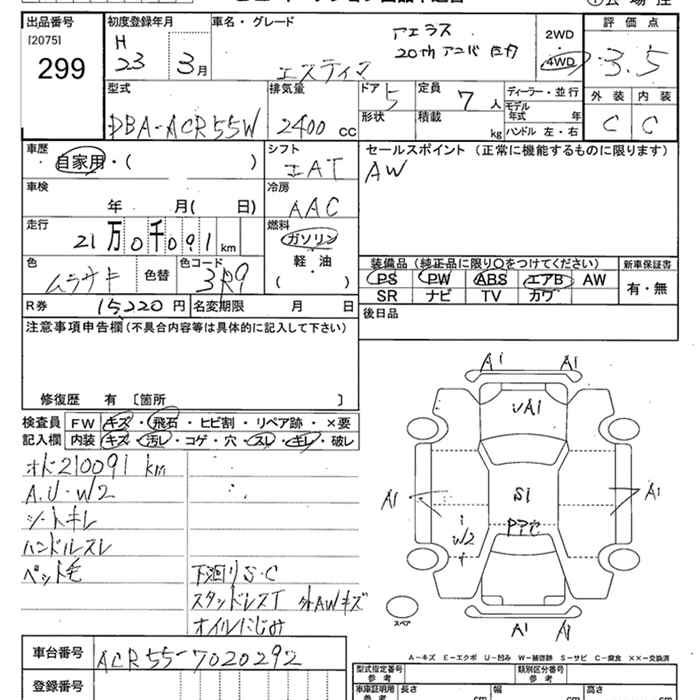 出品番号 初度登録年月 車名・グレード 評価点
[2075]
299
H 23 3月
エスティマ
アエラス
20th アニバ
2WD
4WD
3.5
型式 排気量 ドア 定員 ディーラー・並行 外装 内装
DBA-ACR55W 2400 cc 5 7人
形状 積載 kg
モデル年式 年式
ハンドル 左・右
C C
車歴 シフト セールスポイント (正常に機能するものに限ります)
自家用・( )
AW
車検 冷房
年 月( 日) AAC
走行 燃料
21万0千091 km ガソリン
軽・油
( )
色 色替 色コード
ムラサキ 3R9
装備品 (純正品に限り○をつけてください) 新車保証書
PS PW ABS エアB AW 有・無
SR ナビ TV カワ
R券 15,220 円 名変期限 月 日
後日品
注意事項申告欄(不具合内容等は具体的に記入して下さい)
修復歴 有 〔箇所 〕
検査員 FW キズ・飛石・ヒビ割・リペア跡・×要
記入欄 内装 キズ・汚レ・コゲ・穴・スレ・キレ・破レ
オド210091 km
A.U・W2
シートキレ
ハンドルスレ
ペット毛
下廻りS・C
スタッドレスT 外AWキズ
オイルにじみ
A1 A1
UA1
A1 S1 A1
W2
A1 A1
スペア
A-キズ E-エクボ U-凹み W-補修跡 S-サビ C-腐食 ××-交換済
車台番号 ACR55-7020292
登録番号
型式指定番号 参考 類別区分番号 参考
車庫証明用 参考 長さ cm 幅 cm 高さ cm